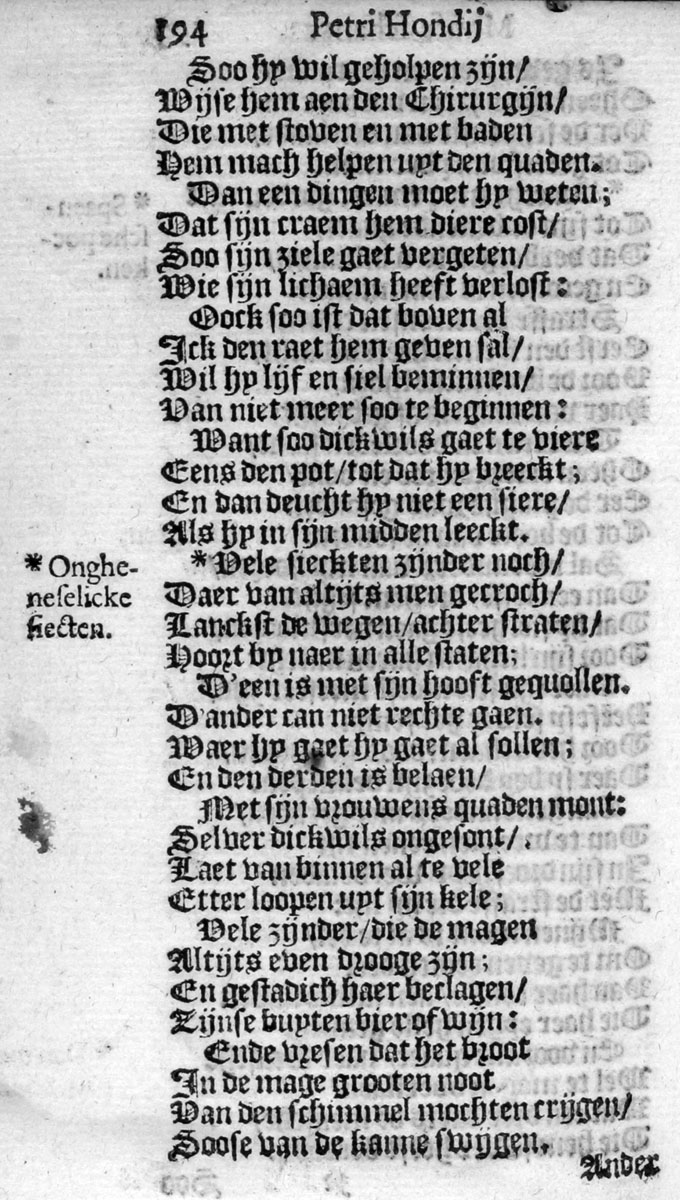 194 Petri Hondij
Soo hy wil geholpen zijn/
Wijse hem aen den Chirurgijn/
Die met stoven en met baden
Hem mach helpen uyt den quaden.
Dan een dingen moet hy weten;
Dat sijn craem hem diere cost/
Soo sijn ziele gaet vergeten/
Wie sijn lichaem heeft verlost:
Oock soo ist dat boven al
Ick den raet hem geven sal/
Wil hy lijf en siel beminnen/
Van niet meer soo te beginnen:
Want soo dickwils gaet te viere
Eens den pot/tot dat hy breeckt;
En dan deucht hy niet een siere/
Als hy in sijn midden leeckt.
* Onghe-
neselicke
siecten.
*Vele sieckten zijnder noch/
Daer van altijts men gecroch/
Lanckst de wegen/achter straten/
Hoort by naer in alle staten;
D'een is met sijn hooft gequollen.
D'ander can niet rechte gaen.
Waer hy gaet hy gaet al sollen;
En den derden is belaen/
Met sijn vrouwens quaden mont:
Selver dickwils ongesont/
Laet van binnen al te vele
Etter loopen uyt sijn kele;
Vele zijnder/die de magen
Altijts even drooge zijn;
En gestadich haer beclagen/
Zijnse buyten bier of wijn:
Ende vresen dat het broot
In de mage grooten noot
Van den schimmel mochten crijgen/
Soose van de kanne swijgen.
Ander